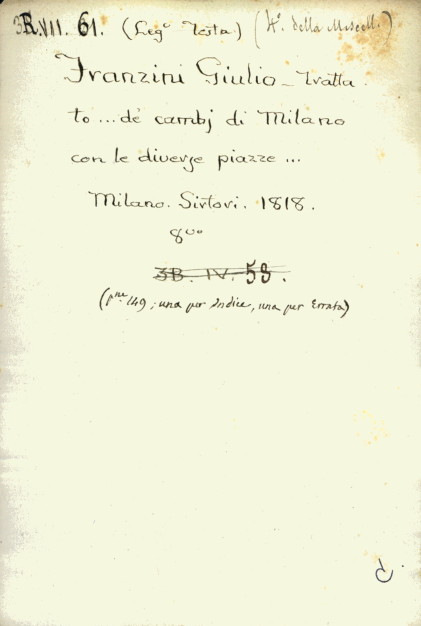 3R.VII. 61. (Leg.º Testa) (4º. della Miscell.)
Franzini Giulio - Tratta
to ... de cambj di Milano
con le diverse piazze ...
Milano. Sirtori. 1818.
8vo
3B. IV. 58.
(pne 149; una per Indice, una per Errata)